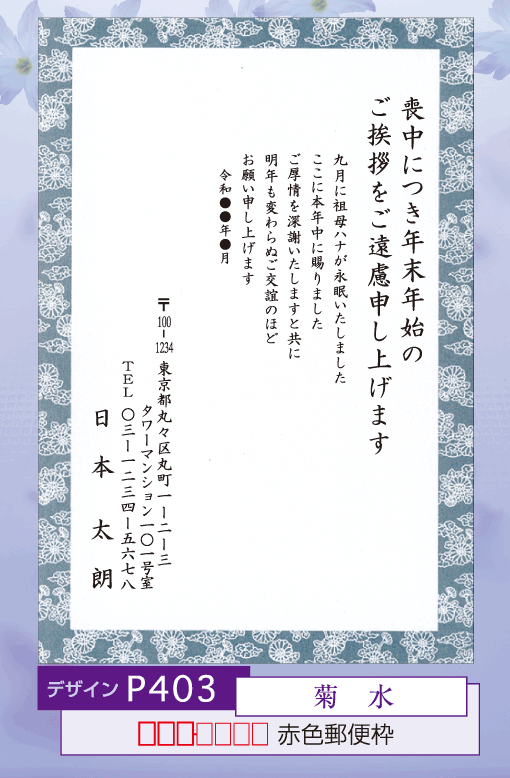 喪中につき年末年始の
ご挨拶をご遠慮申し上げます
九月に祖母ハナが永眠いたしました
ここに本年中に賜りました
ご厚情を深謝いたしますと共に
明年も変わらぬご交誼のほど
お願い申し上げます
令和●●年●月
〒100-1234 東京都丸々区丸町一ー二ー三
タワーマンション一〇一号室
TEL 〇三ー一二三四ー五六七八
日本太朗
デザイン P403
菊水
赤色郵便枠